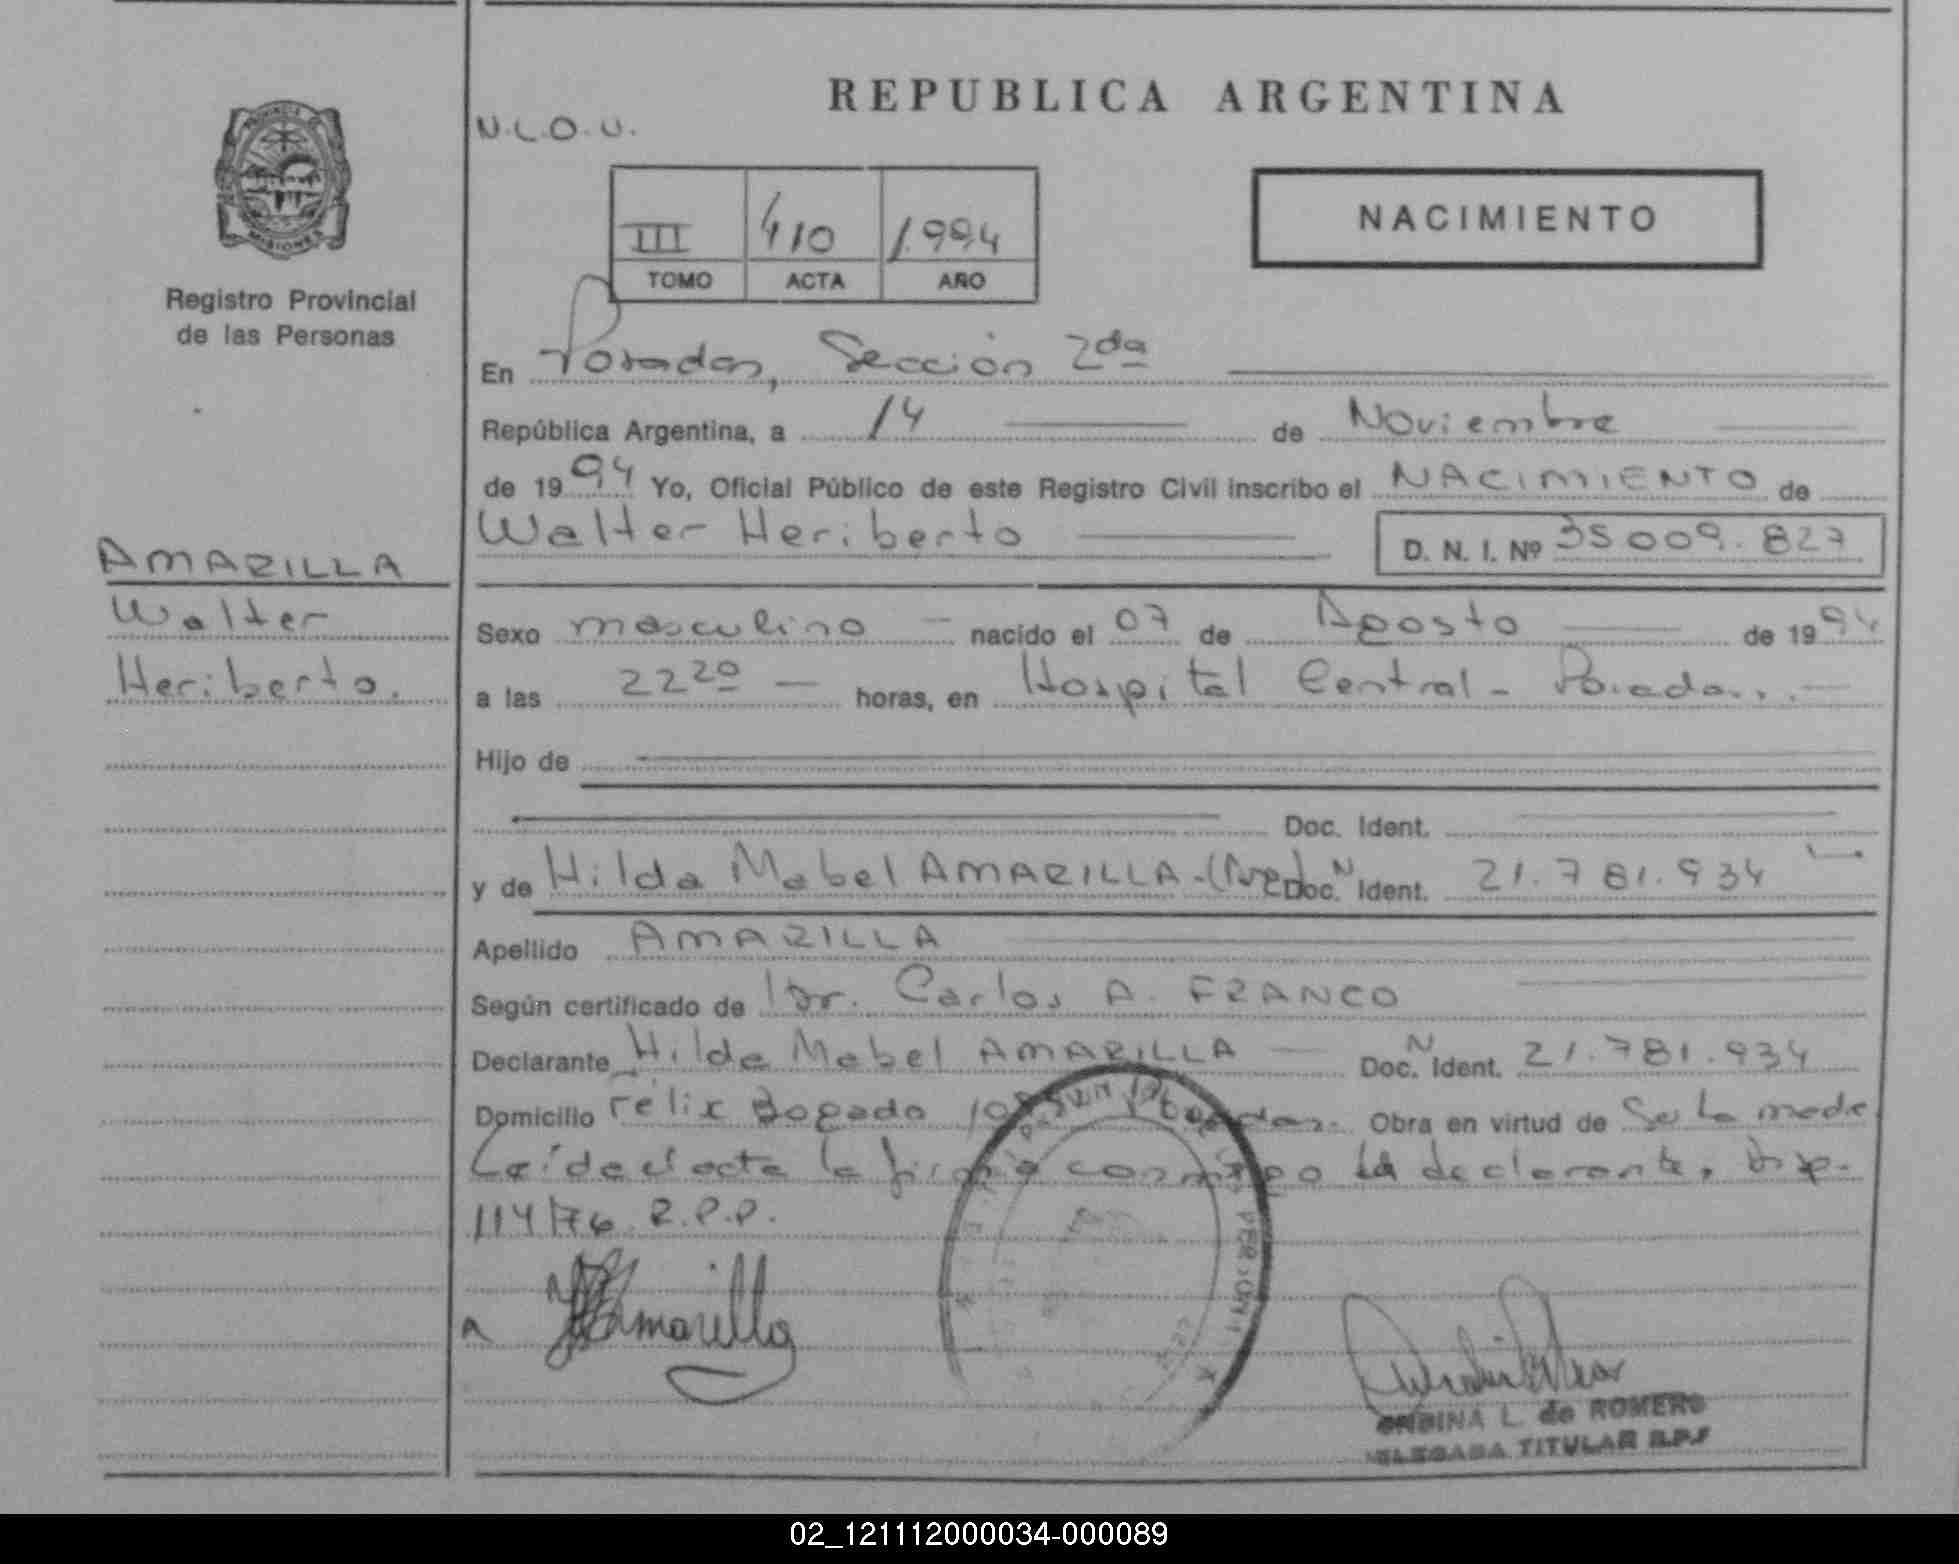 REPUBLICA ARGENTINA
PROVINCIA DE
MISIONES
Registro Provincial
de las Personas
N.L.O.U.
III 410 1.994
TOMO ACTA AÑO
NACIMIENTO
En Posadas, Sección 2da
República Argentina, a 14 de Noviembre
de 1994 Yo, Oficial Público de este Registro Civil inscribo el NACIMIENTO de
Walter Heriberto D. N. I. Nº 35009.827
AMARILLA
Walter
Heriberto.
Sexo masculino nacido el 07 de Agosto de 1994
a las 22 20 horas, en Hospital Central - Posadas.
Hijo de
Doc. Ident.
y de Hilda Mabel AMARILLA.- (Arg) Doc. N Ident. 21.781.934
Apellido AMARILLA
Según certificado de Dr. Carlos A. FRANCO
Declarante Hilda Mabel AMARILLA Doc. N Ident. 21.781.934
Domicilio Félix Bogado Posadas. Obra en virtud de Ser la madre
Leída el acta la firma conmigo la declarante. Disp.
114/76 R.P.P.
A Amarilla
L. de ROMERO
DELEGADA TITULAR R.P.P
02_121112000034-000089